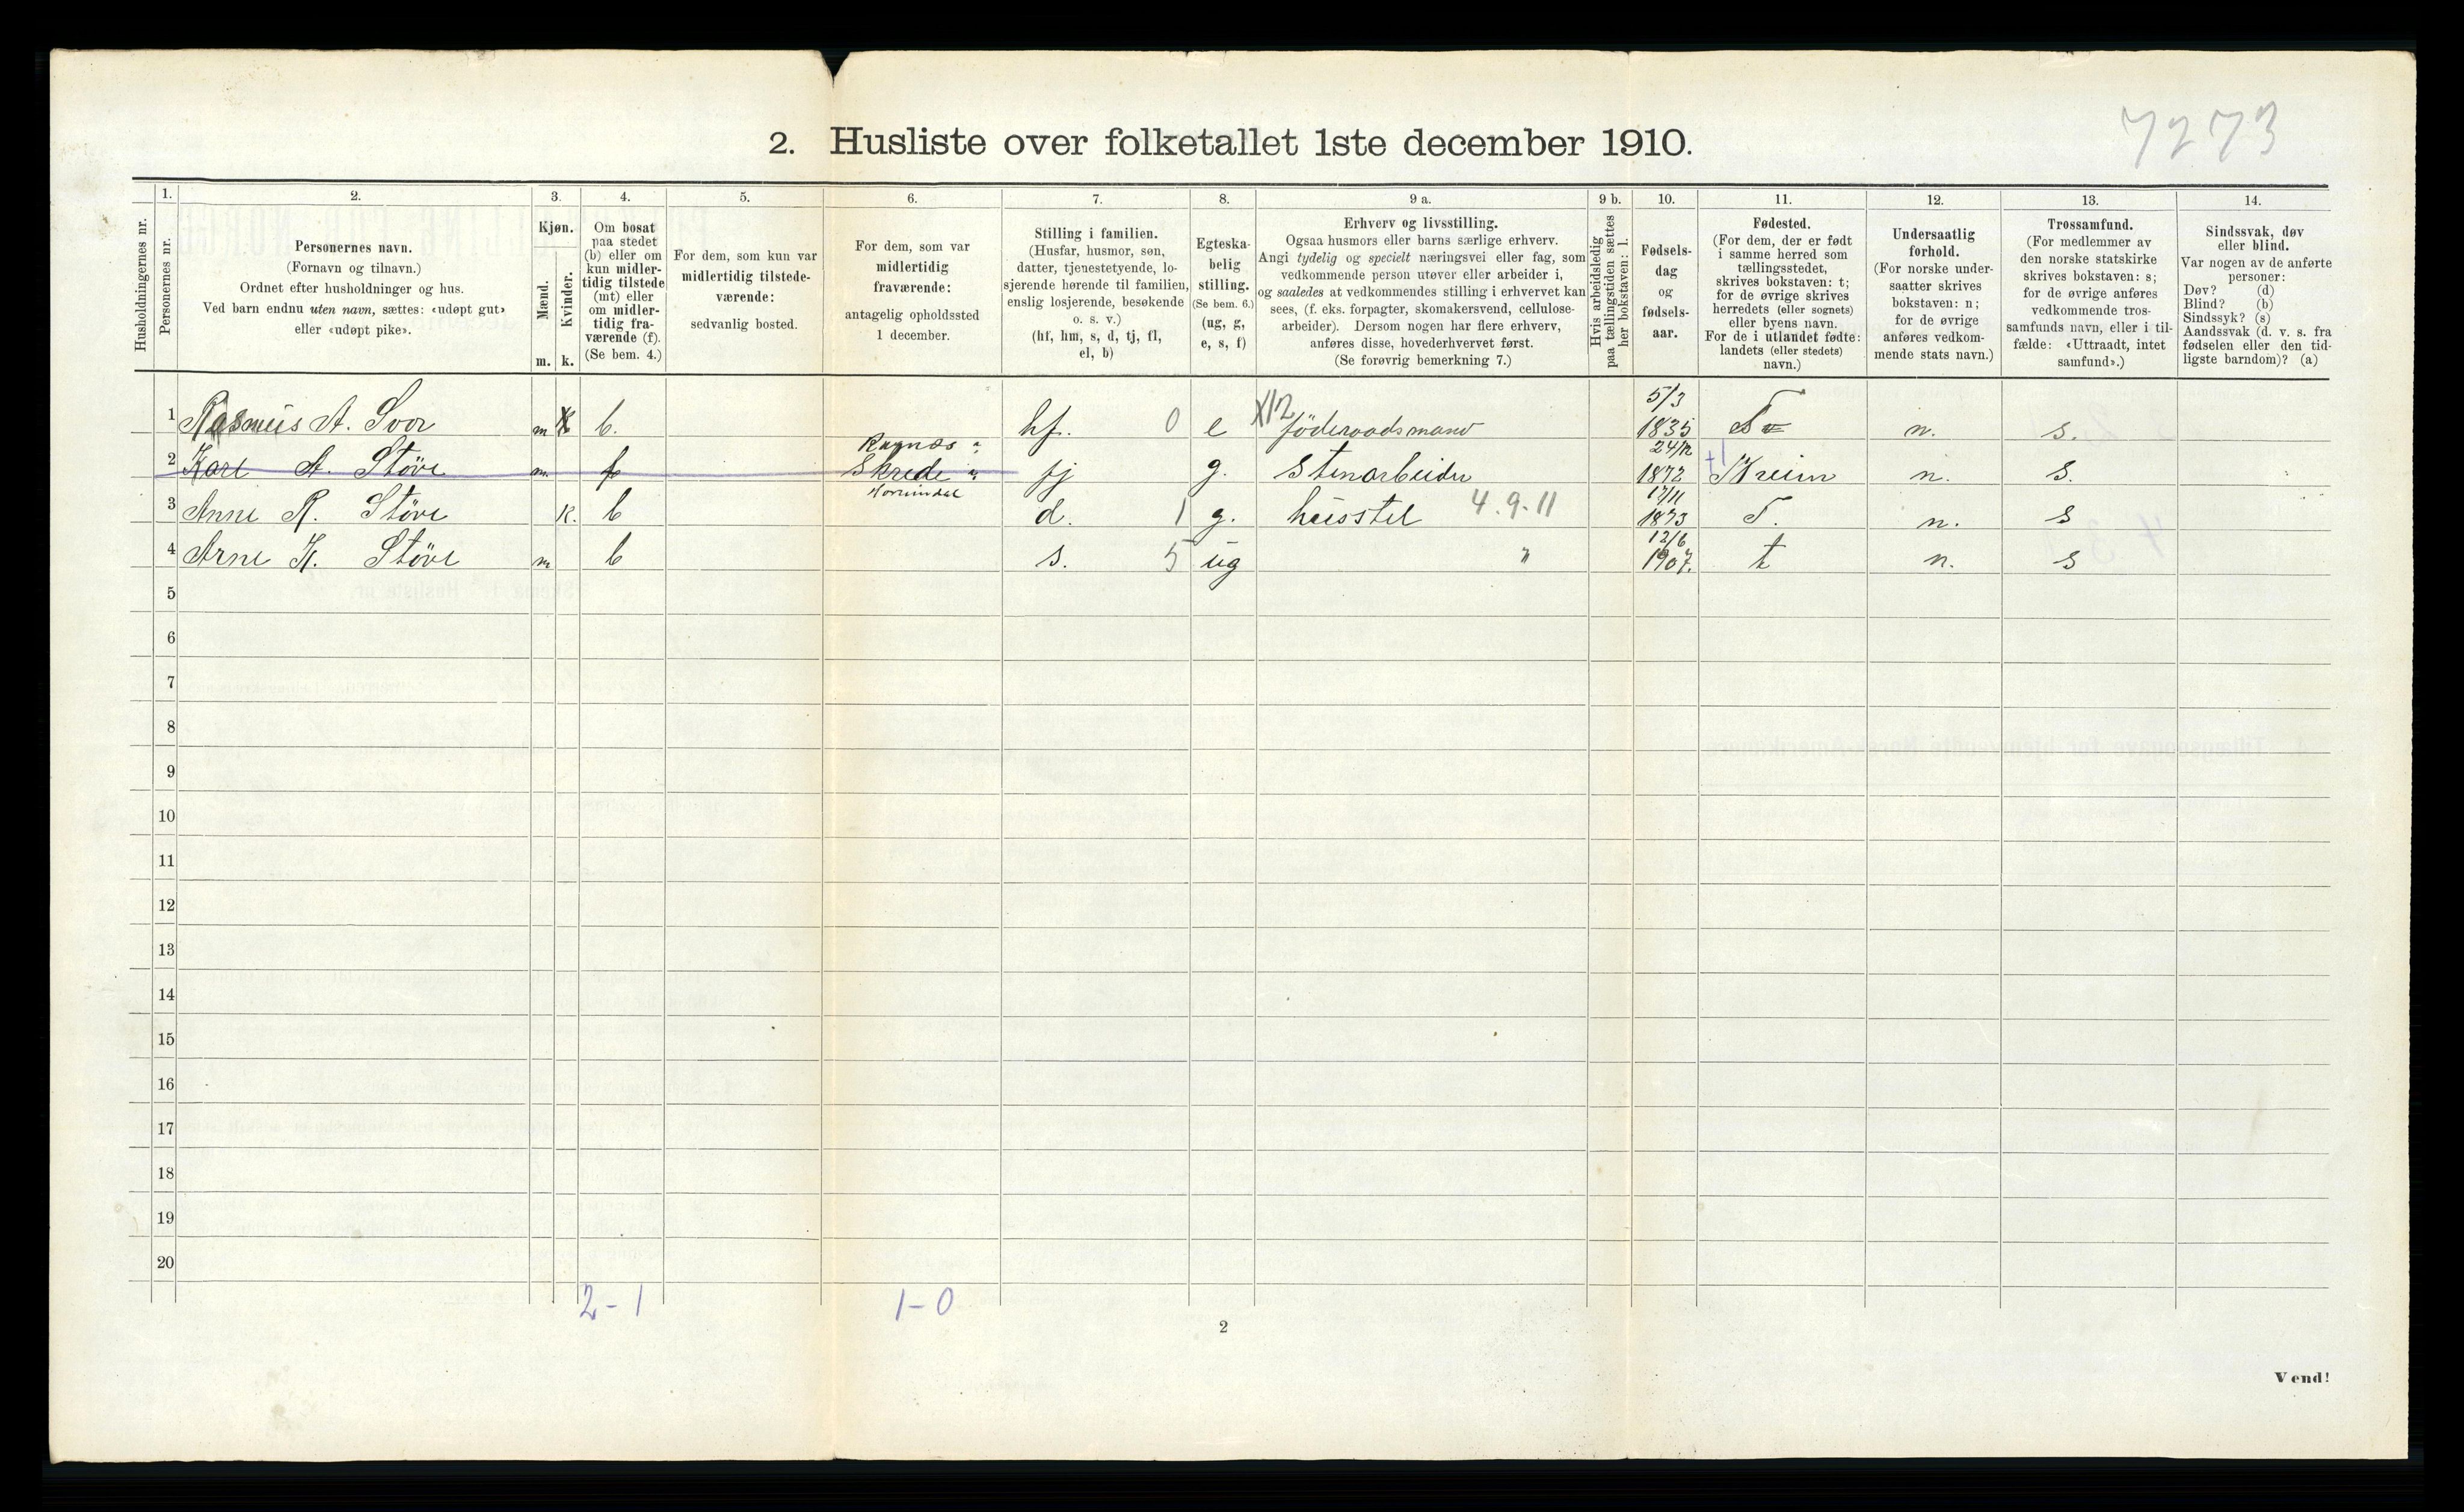 7273
2. Husliste over folketallet 1ste december 1910.
Husholdningernes nr.
1.
Personernes nr.
2.
Personernes navn.
(Fornavn og tilnavn.)
Ordnet efter husholdninger og hus.
Ved barn endnu uten navn, sættes: «udøpt gut»
eller «udøpt pike».
3.
Kjøn.
Mænd.
Kvinder.
m. k.
4.
Om bosat
paa stedet
(b) eller om
kun midler-
tidig tilstede
(mt) eller
om midler-
tidig fra-
værende (f).
(Se bem. 4.)
5.
For dem, som kun var
midlertidig tilstede-
værende:
sedvanlig bosted.
6.
For dem, som var
midlertidig
fraværende:
antagelig opholdssted
1 december.
7.
Stilling i familien.
(Husfar, husmor, søn,
datter, tjenestetyende, lo-
sjerende hørende til familien,
enslig losjerende, besøkende
o. s. v.)
(hf, hm, s, d, tj, fl,
el, b)
8.
Egteska-
belig
stilling.
(Se bem. 6.)
(ug, g,
e, s, f)
9 a.
Erhverv og livsstilling.
Ogsaa husmors eller barns særlige erhverv.
Angi tydelig og specielt næringsvei eller fag, som
vedkommende person utøver eller arbeider i,
og saaledes at vedkommendes stilling i erhvervet kan
sees, (f. eks. forpagter, skomakersvend, cellulose-
arbeider). Dersom nogen har flere erhverv,
anføres disse, hovederhvervet først.
(Se forøvrig bemerkning 7.)
9 b.
Hvis arbeidsledig
paa tællingstiden sættes
her bokstaven: l.
10.
Fødsels-
dag
og
fødsels-
aar.
11.
Fødested.
(For dem, der er født
i samme herred som
tællingsstedet,
skrives bokstaven: t;
for de øvrige skrives
herredets (eller sognets)
eller byens navn.
For de i utlandet fødte:
landets (eller stedets)
navn.)
12.
Undersaatlig
forhold.
(For norske under-
saatter skrives
bokstaven: n;
for de øvrige
anføres vedkom-
mende stats navn.)
13.
Trossamfund.
(For medlemmer av
den norske statskirke
skrives bokstaven: s;
for de øvrige anføres
vedkommende tros-
samfunds navn, eller i til-
fælde: «Uttraadt, intet
samfund».)
14.
Sindssvak, døv
eller blind.
Var nogen av de anførte
personer:
Døv? (d)
Blind? (b)
Sindssyk? (s)
Aandssvak (d. v. s. fra
fødselen eller den tid-
ligste barndom)? (a)
1 Rasmus A. Svor m b. hf. 0 e X12 föderaadsmand 5/3 1835 n. s.
2 Karl A. Støve m f Skrede tj g. Stenarbeider 24/12 1872 Breim n. s.
3 Anne R. Støve k. b d. 1 g. husstel 4.9.11 17/11 1873 T. n. s
4 Arne K. Støve m b s. 5 ug " 12/6 1907. t n. s
5
6
7
8
9
10
11
12
13
14
15
16
17
18
19
20
2-1 1-0
2
Vend!